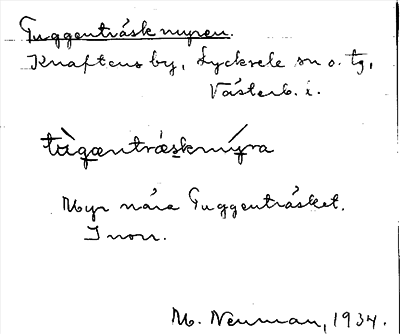 Tuggenträskmyren.
Knaftens by, Lycksele sn o. tg,
Västerb. l.
tùgæntræskmýra
Myr nära Tuggenträsket.
I norr.
M. Neuman, 1934.